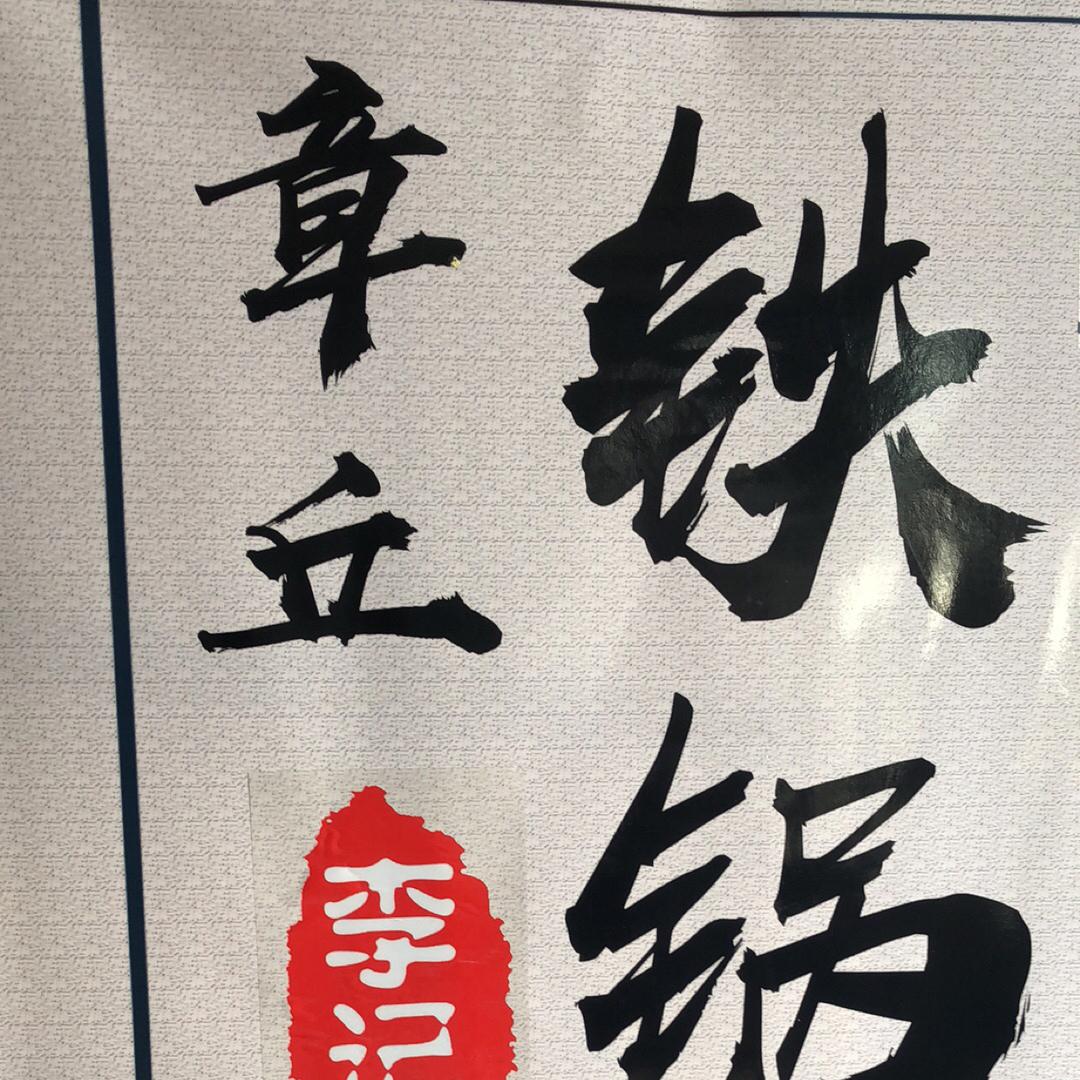 章丘
铁锅
李记